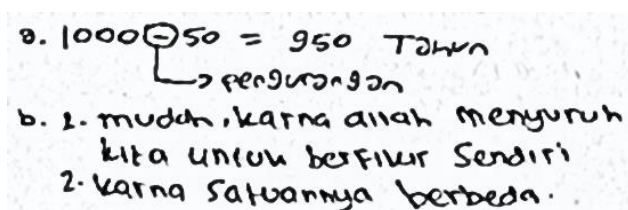 a. 1000 - 50 = 950 Tahun
→ pengurangan
b. 1. mudah, karna allah menyuruh
kita untuk berfikir Sendiri
2. karna Satuannya berbeda.